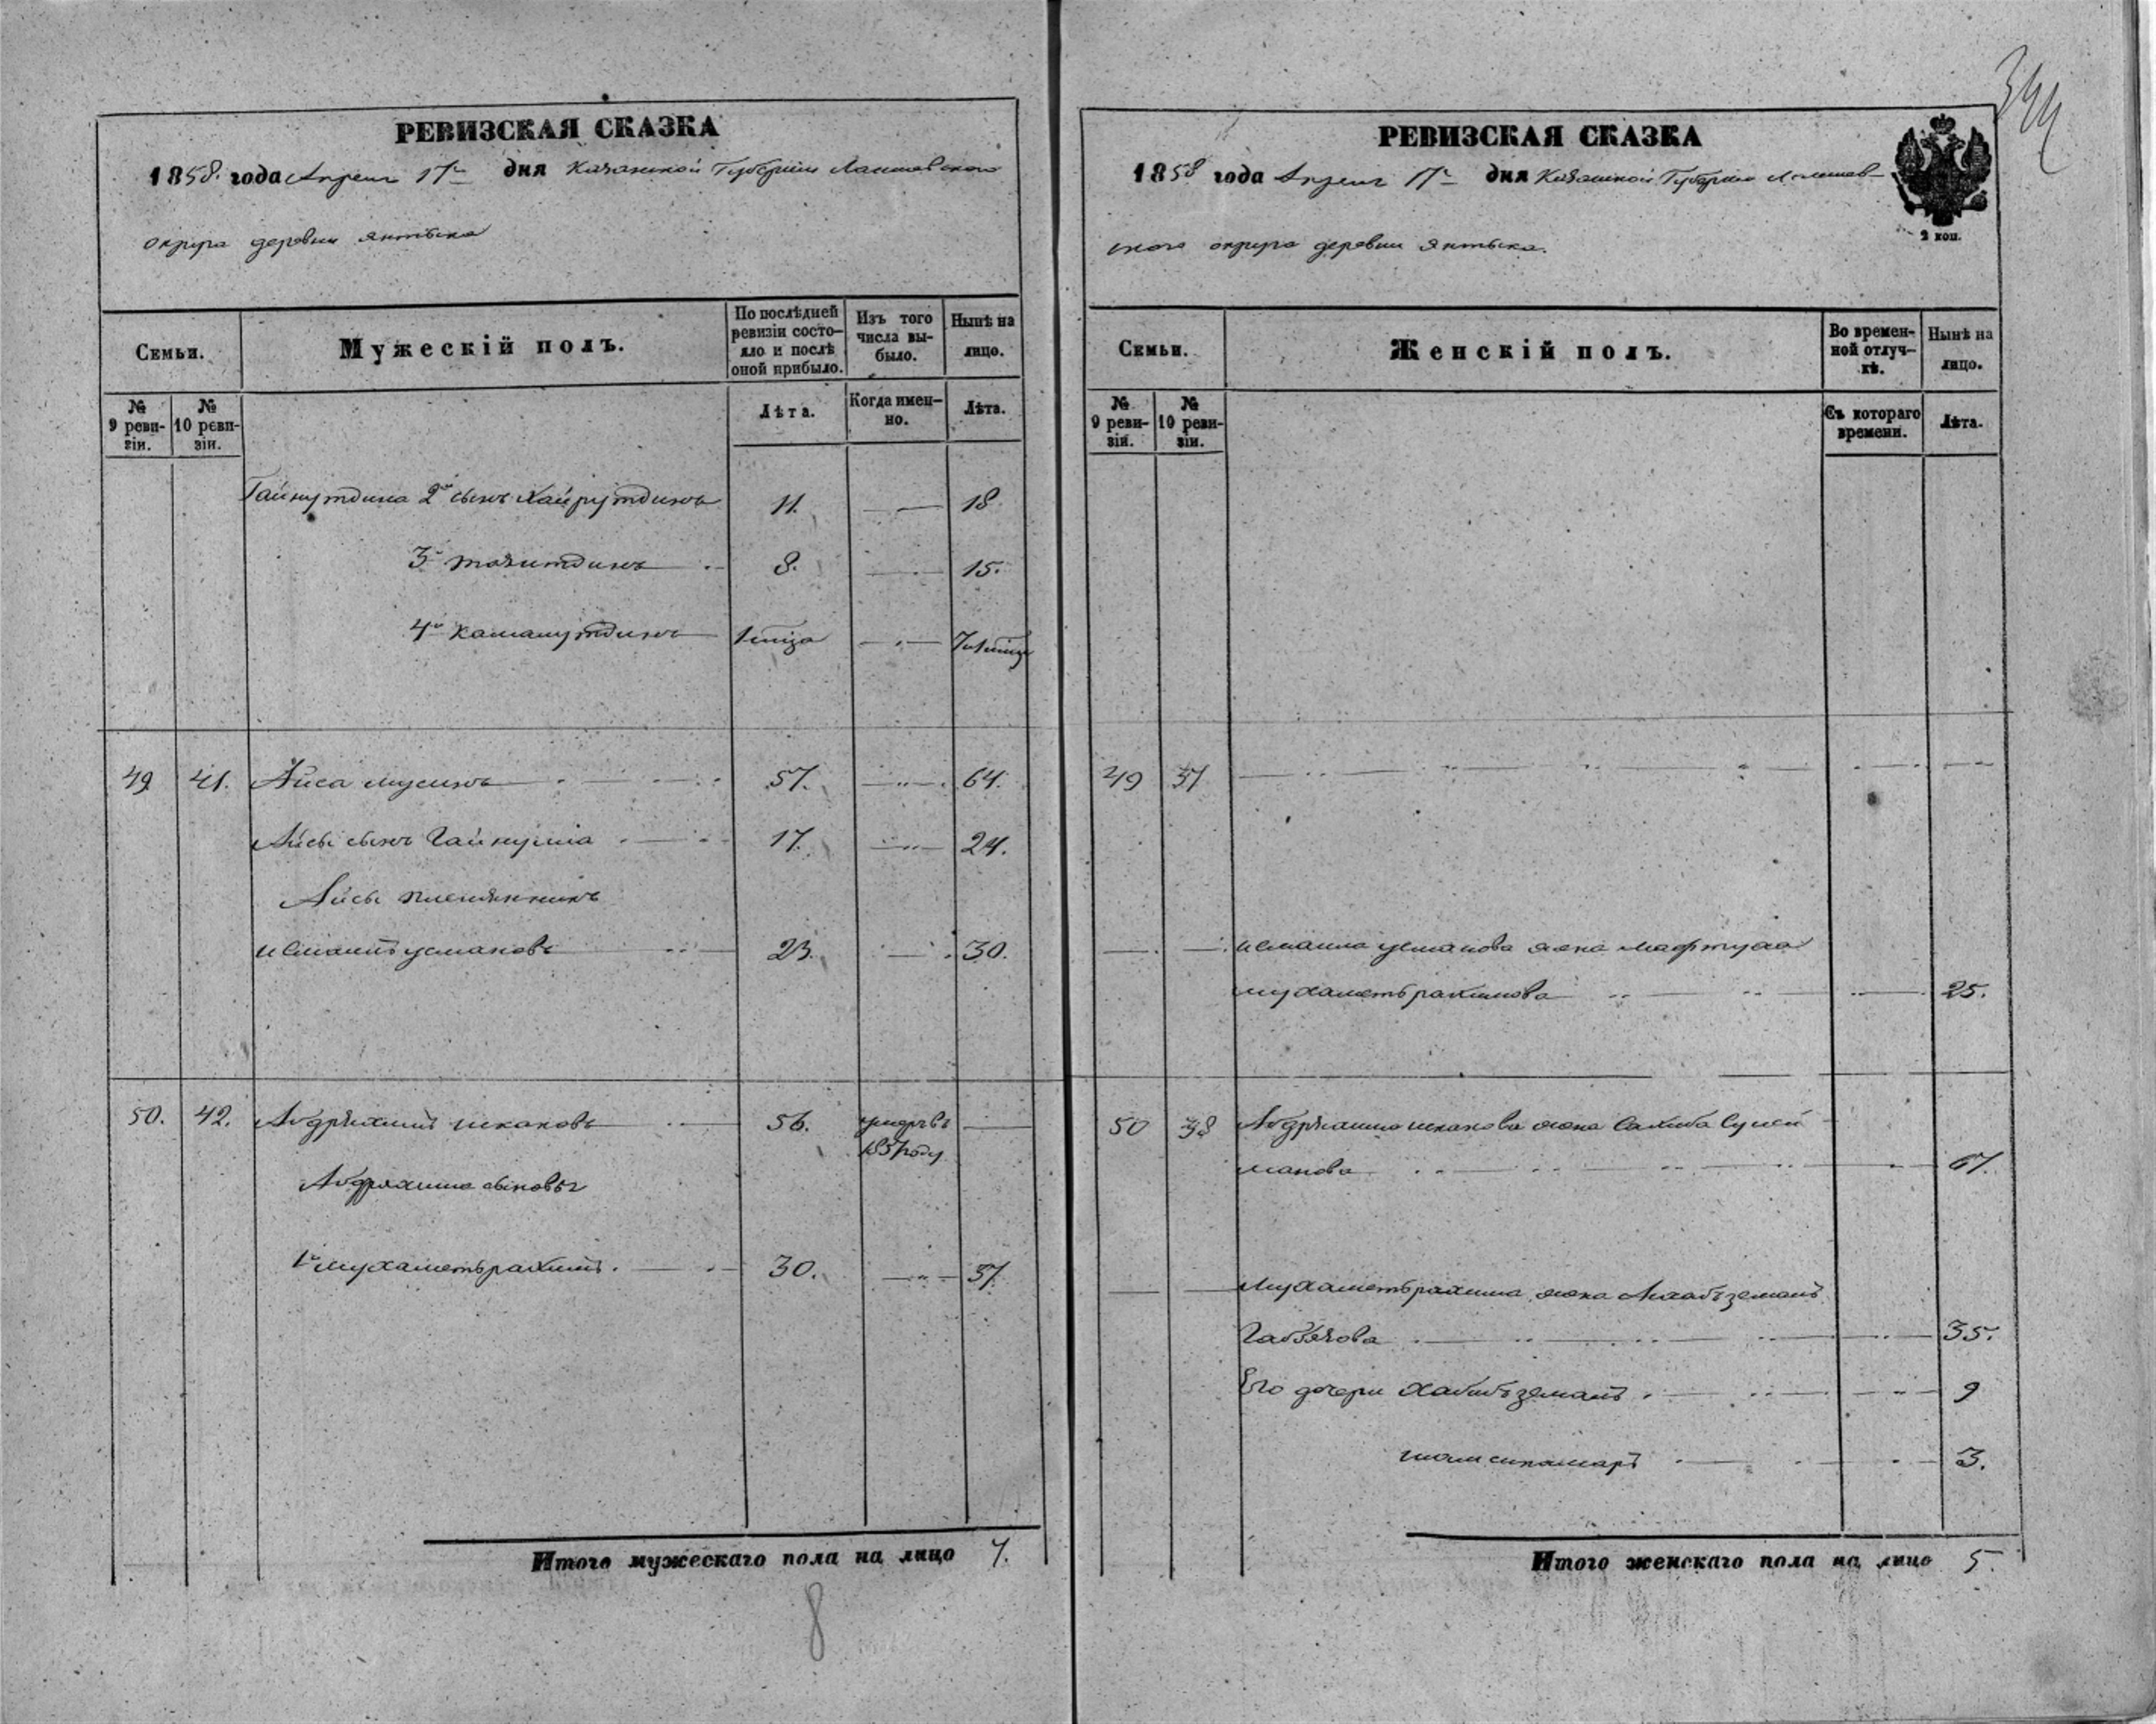 344
РЕВИЗСКАЯ СКАЗКА
1858. года Апреля 17го дня Казанской Губернии Лаишевского
округа деревни Янтыка
Семьи.
Мужескій полъ.
По послѣдней ревизіи состояло и послѣ оной прибыло.
Изъ того числа выбыло.
Нынѣ на лицо.
№ 9 ревизіи.
№ 10 ревизіи.
Лѣта.
Когда именно.
Лѣта.
Гайнутдина 2й сынъ Хайрутдинъ 11. — 18
3й 8. — 15.
4й Камалутдинъ — 
49 41. Айса Мусинъ 57. — 64.
Айсы сынъ 17. — 24.
Айсы племянникъ
Исмаилъ Усмановъ 23. — 30.
50. 42. Абдряхимъ 56. умеръ въ —
1857 году
Абдряхима сыновья
1й Мухаметьрахимъ. — 30. — 37.
Итого мужескаго пола на лицо 7.
8
РЕВИЗСКАЯ СКАЗКА
1858 года Апреля 17го дня Казанской Губернии Лаишев-
ского округа деревни Янтыка.
2 коп.
Семьи.
Женскій полъ.
Во временной отлучкѣ.
Нынѣ на лицо.
№ 9 ревизіи.
№ 10 ревизіи.
Съ котораго времени.
Лѣта.
49 37 —
— — Исмаила Усманова жена Мафтуха
Мухаметьрахимова — 25.
50 38 Абдряхима жена Сахиба Сулей
манова — 67.
— — Мухаметьрахима жена
— 35.
Его дочери Хабибъземалъ. — 9
— 3.
Итого женскаго пола на лицо 5.